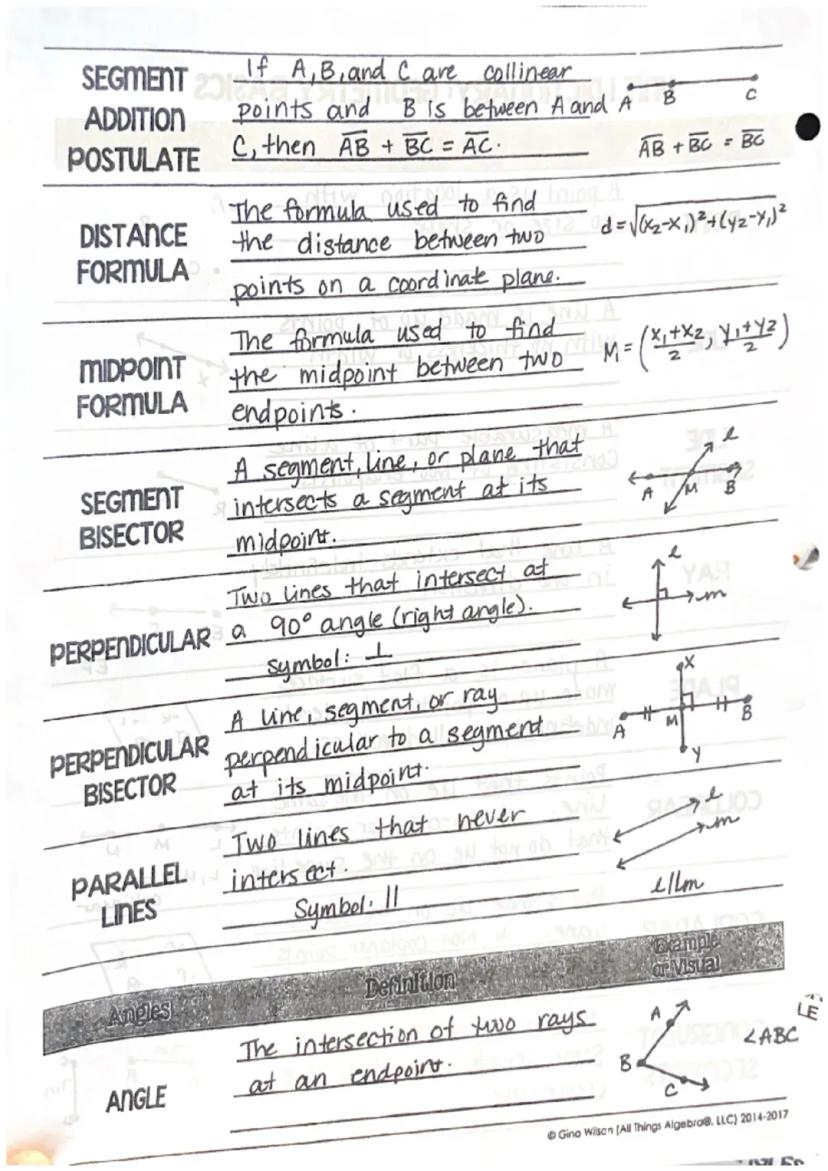 SEGMENT
ADDITION
POSTULATE
If A, B, and C are collinear
points and B is between A and
C, then A̅B̅ + B̅C̅ = A̅C̅.
A B C
A̅B̅ + B̅C̅ = B̅C̅
DISTANCE
FORMULA
The formula used to find
the distance between two
points on a coordinate plane.
d=√(x₂-x₁)²+(y₂-y₁)²
MIDPOINT
FORMULA
The formula used to find
the midpoint between two
endpoints.
M = (x₁+x₂/2, y₁+y₂/2)
SEGMENT
BISECTOR
A segment, line, or plane that
intersects a segment at its
midpoint.
l
A M B
PERPENDICULAR
Two lines that intersect at
a 90° angle (right angle).
symbol: ⊥
l
m
PERPENDICULAR
BISECTOR
A line, segment, or ray
perpendicular to a segment
at its midpoint.
X
A M B
Y
PARALLEL
LINES
Two lines that never
intersect.
Symbol: ||
l
m
l||m
Angles
Definition
Example
or Visual
ANGLE
The intersection of two rays
at an endpoint.
A
B
C
∠ABC
© Gina Wilson (All Things Algebra®, LLC) 2014-2017